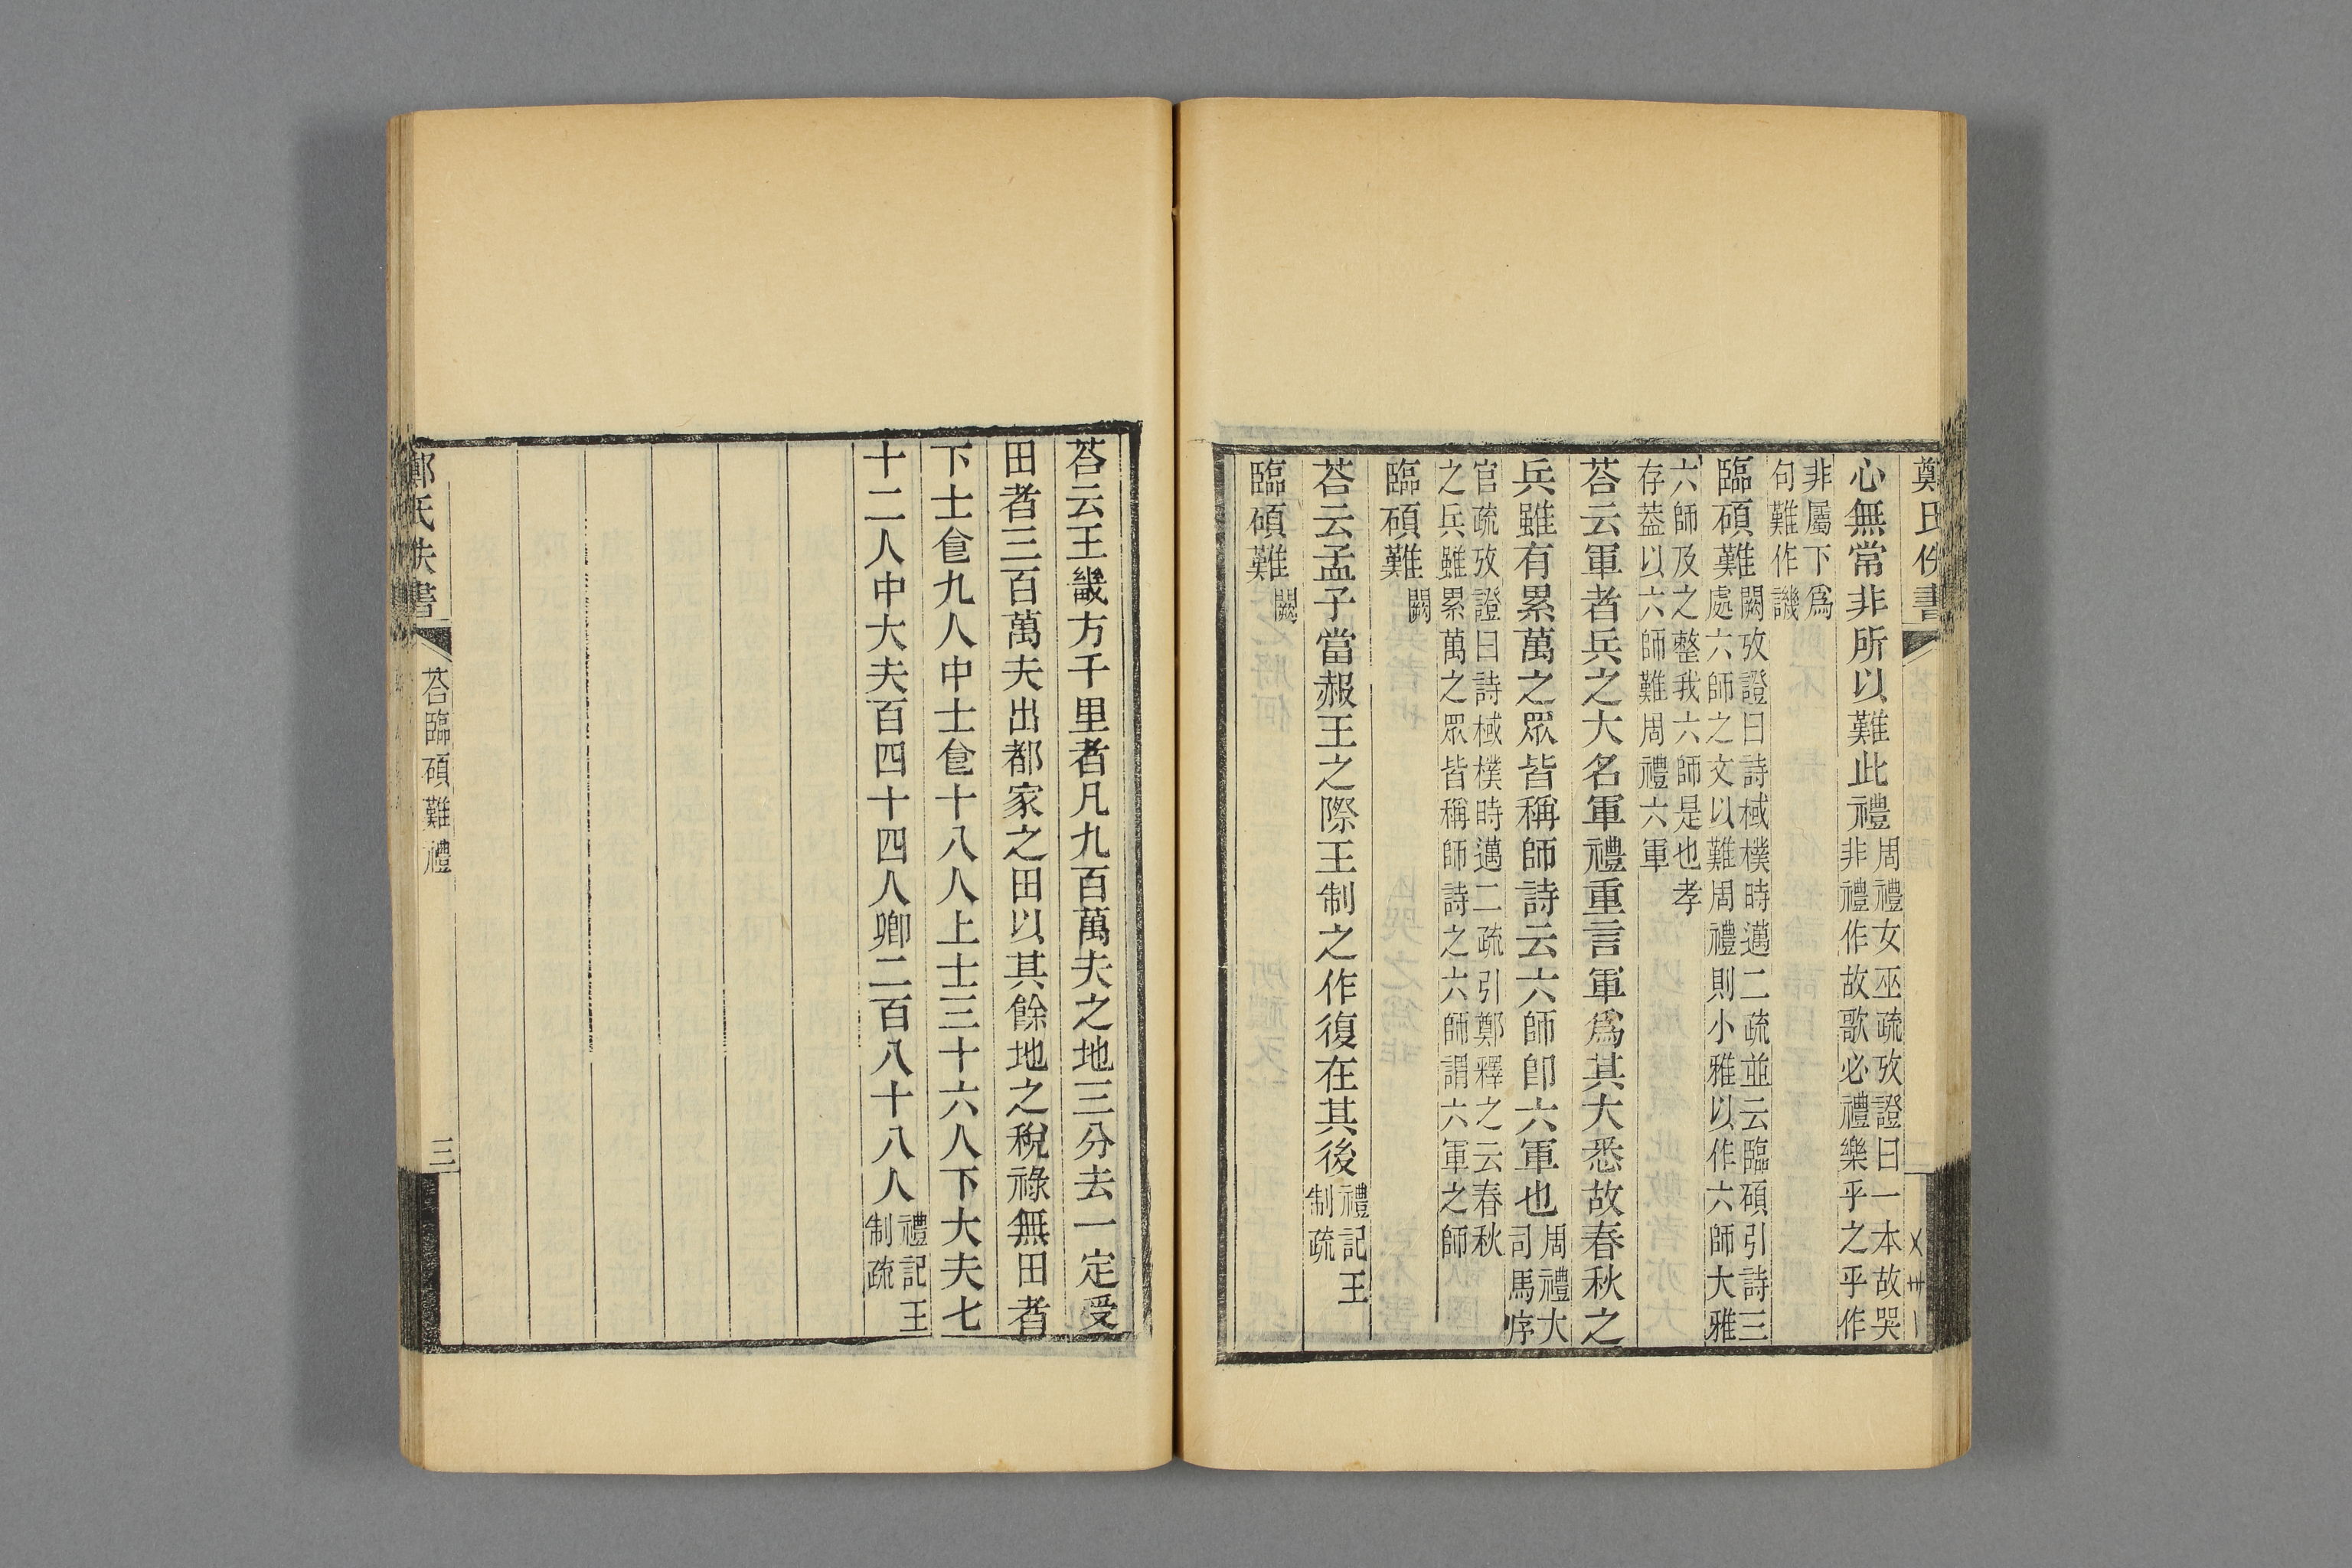 鄭氏佚書
心無常非所以難此禮周禮女巫疏攷證曰一本故哭
非禮作故歌必禮樂乎之乎作
非屬下爲
句難作譏
臨碩難闕攷證曰詩棫樸時邁二疏並云臨碩引詩三
處六師之文以難周禮則小雅以作六師大雅
六師及之整我六師是也孝
存葢以六師難周禮六軍
荅云軍者兵之大名軍禮重言軍爲其大悉故春秋之
兵雖有累萬之眾皆稱師詩云六師卽六軍也周禮大
司馬序
官疏攷證曰詩棫樸時邁二疏引鄭釋之云春秋
之兵雖累萬之眾皆稱師詩之六師謂六軍之師
臨碩難闕
荅云孟子當赧王之際王制之作復在其後禮記王
制疏
臨碩難闕
荅云王畿方千里者凡九百萬夫之地三分去一定受
田者三百萬夫出都家之田以其餘地之稅祿無田者
下士食九人中士食十八人上士三十六人下大夫七
十二人中大夫百四十四人卿二百八十八人禮記王
制疏
鄭氏佚書
荅臨碩難禮
三